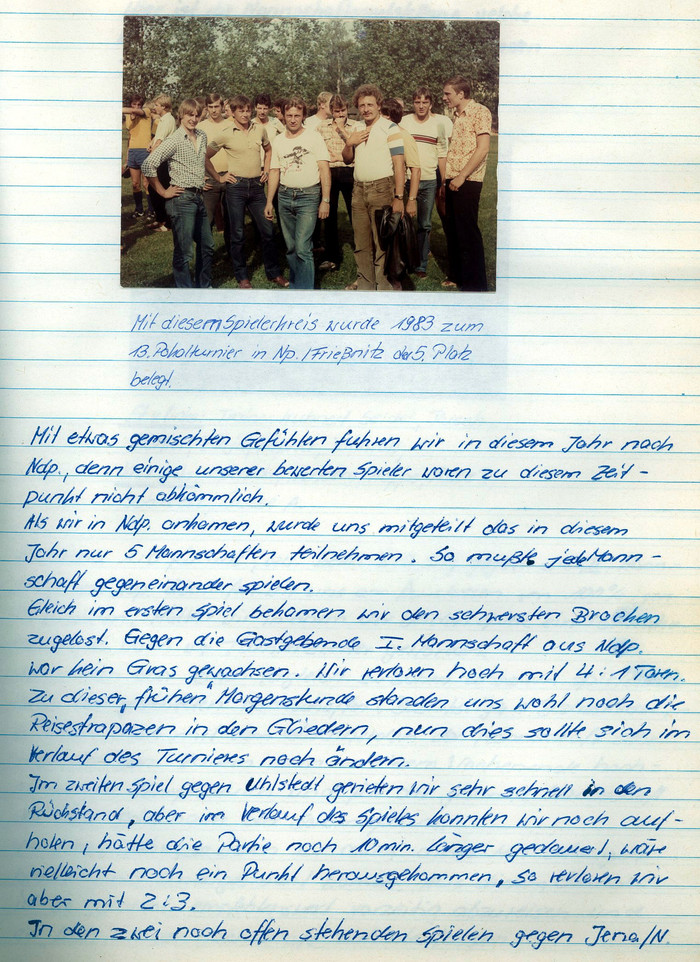 Mit diesem Spielerkreis wurde 1983 zum
13. Pokalturnier in Np./Frießnitz der 5. Platz
belegt.
Mit etwas gemischten Gefühlen fuhren wir in diesem Jahr nach
Ndp., denn einige unserer bewerten Spieler waren zu diesem Zeit-
punkt nicht abkömmlich.
Als wir in Ndp. ankamen, wurde uns mitgeteilt das in diesem
Jahr nur 5 Mannschaften teilnehmen. So mußte jede Mann-
schaft gegeneinander spielen.
Gleich im ersten Spiel bekamen wir den schwersten Brocken
zugelost. Gegen die Gastgebende I. Mannschaft aus Ndp.
war kein Gras gewachsen. Wir verloren hoch mit 4:1 Toren.
Zu dieser „frühen" Morgenstunde standen uns wohl noch die
Reisestrapazen in den Gliedern, nun dies sollte sich im
Verlauf des Turnieres noch ändern.
Im zweiten Spiel gegen Uhlstedt gerieten wir sehr schnell in den
Rückstand, aber im Verlauf des Spieles konnten wir noch auf-
holen, hätte die Partie noch 10 min. länger gedauert, wäre
vielleicht noch ein Punkt herausgekommen, so verloren wir
aber mit 2:3.
In den zwei noch offen stehenden Spielen gegen Jena/N.